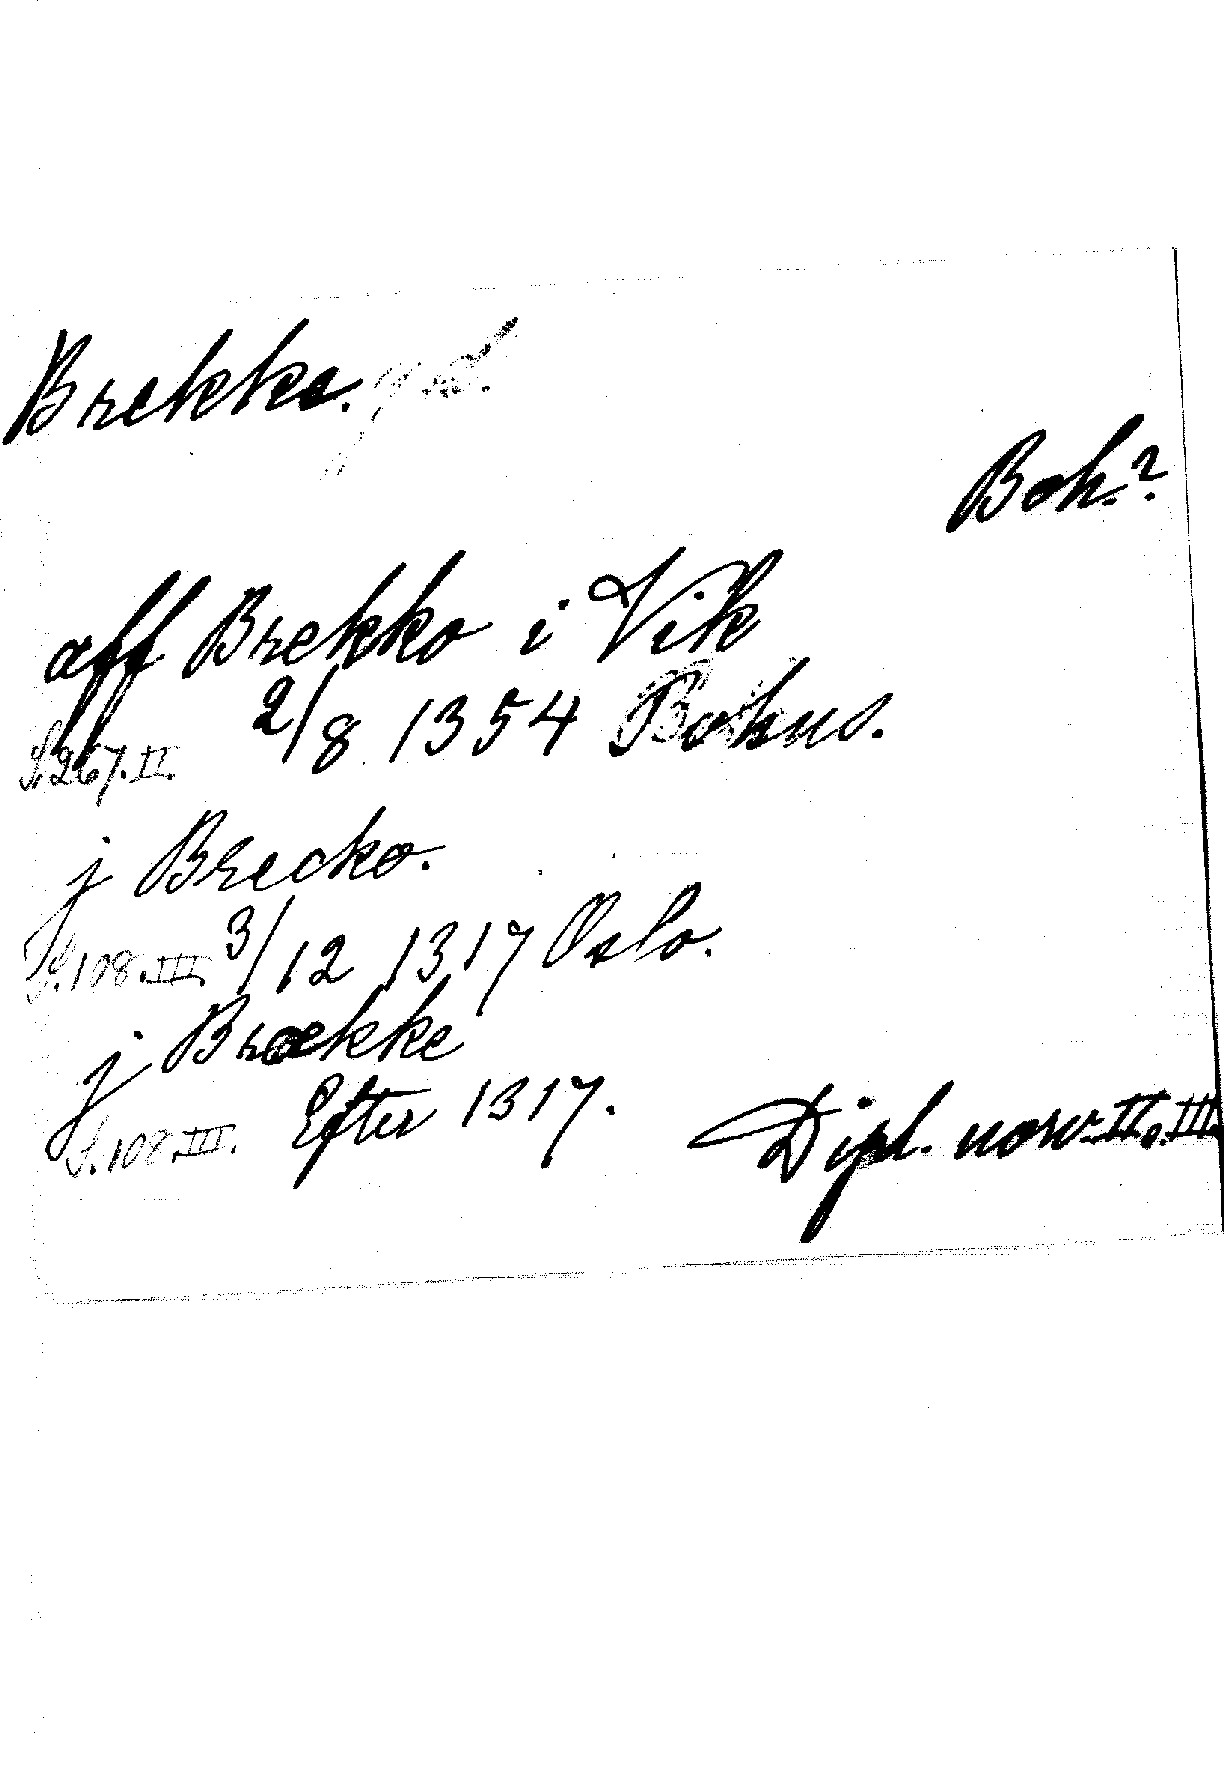 Brekke. gd.
Boh.?
aff Brekko i Vik
S. 267. II. 2/8 1354 Bohus.
j Brecko.
S. 108. III. 3/12 1317 Oslo.
j Brække
S. 108. III. Efter 1317.
Dipl. norv. II. III.